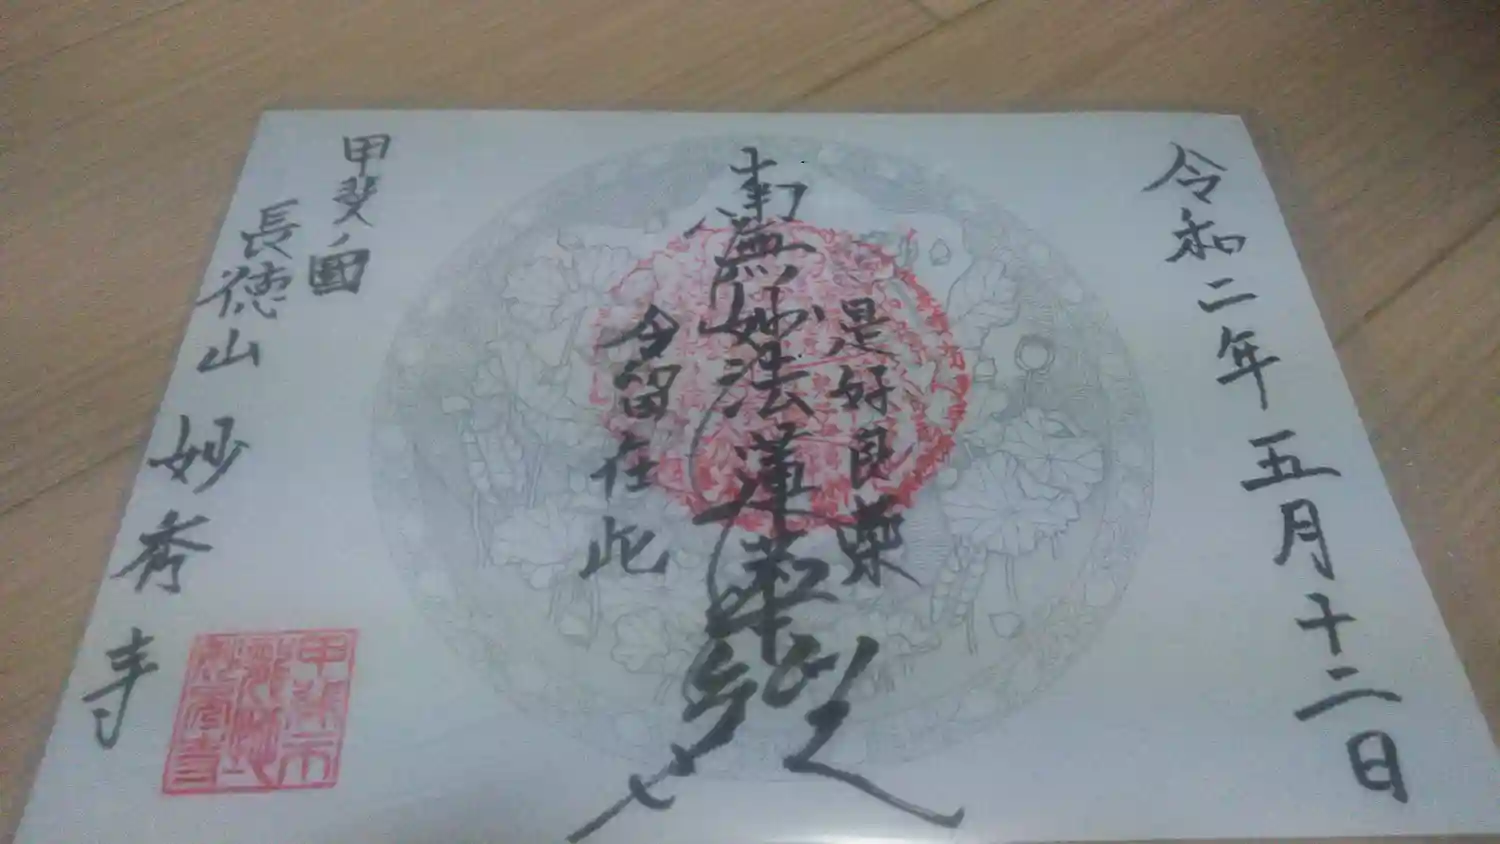 令和二年五月十二日
是好良薬
南無妙法蓮華經
今留在此
甲斐ノ國
長徳山 妙秀寺
甲斐市
龍地
妙秀寺